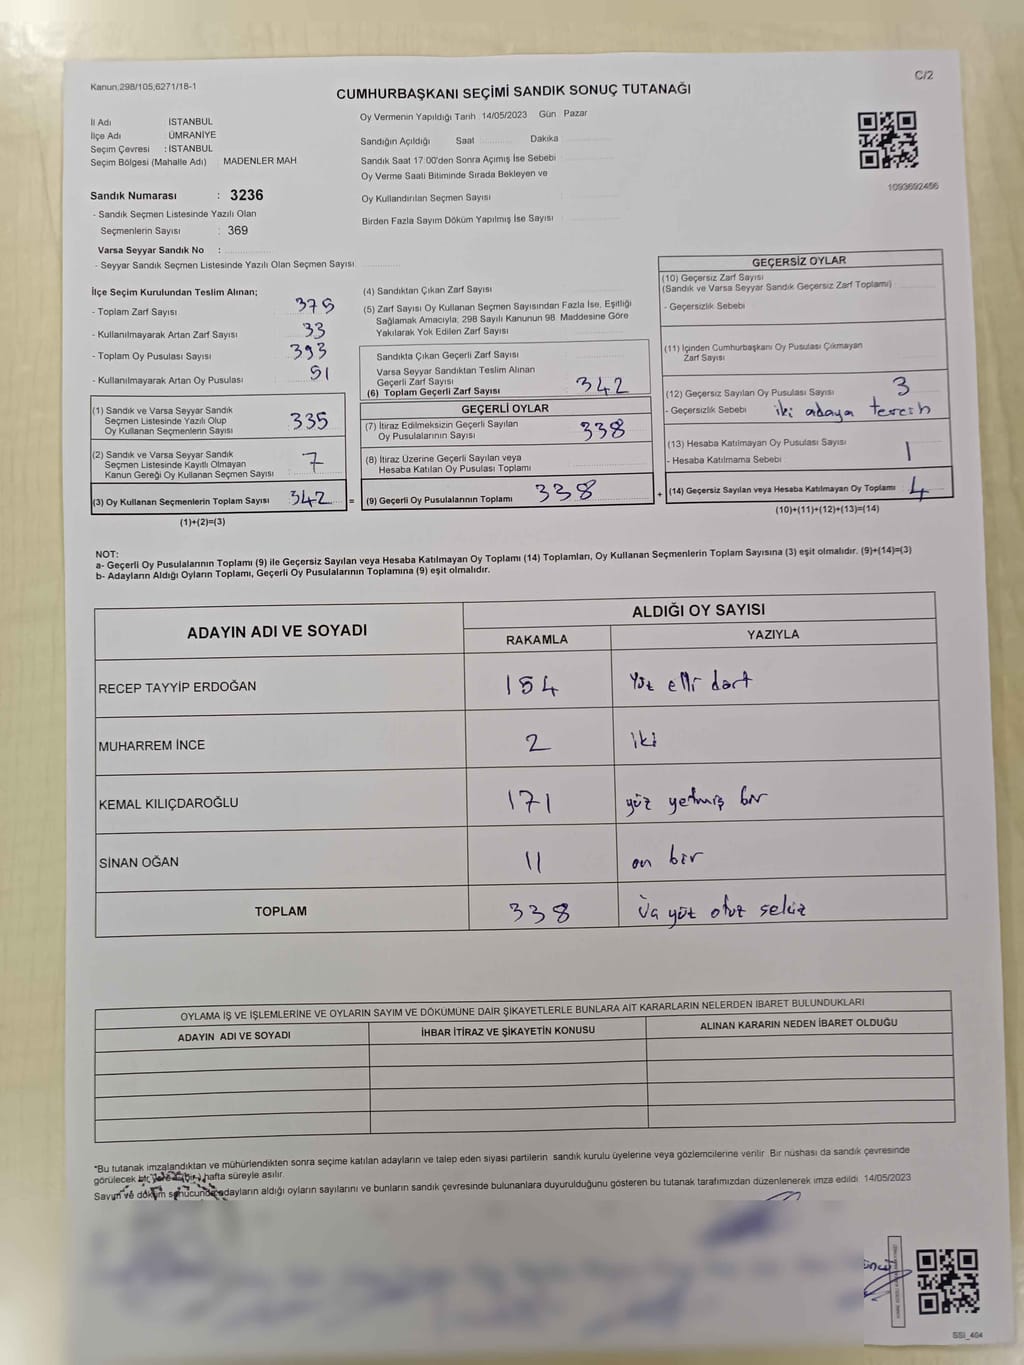 Kanun;298/105;6271/18-1
C/2
CUMHURBAŞKANI SEÇİMİ SANDIK SONUÇ TUTANAĞI
İl Adı İSTANBUL
İlçe Adı : ÜMRANİYE
Seçim Çevresi : İSTANBUL
Seçim Bölgesi (Mahalle Adı) : MADENLER MAH
Sandık Numarası : 3236
- Sandık Seçmen Listesinde Yazılı Olan
Seçmenlerin Sayısı : 369
Varsa Seyyar Sandık No :
- Seyyar Sandık Seçmen Listesinde Yazılı Olan Seçmen Sayısı
Oy Vermenin Yapıldığı Tarih 14/05/2023 Gün Pazar
Sandığın Açıldığı Saat Dakika
Sandık Saat 17:00'den Sonra Açımış İse Sebebi
Oy Verme Saati Bitiminde Sırada Bekleyen ve
Oy Kullandırılan Seçmen Sayısı
Birden Fazla Sayım Döküm Yapılmış İse Sayısı
1093692456
İlçe Seçim Kurulundan Teslim Alınan;
- Toplam Zarf Sayısı 375
- Kullanılmayarak Artan Zarf Sayısı 33
- Toplam Oy Pusulası Sayısı 393
- Kullanılmayarak Artan Oy Pusulası 51
(1) Sandık ve Varsa Seyyar Sandık
Seçmen Listesinde Yazılı Olup
Oy Kullanan Seçmenlerin Sayısı 335
(2) Sandık ve Varsa Seyyar Sandık
Seçmen Listesinde Kayıtlı Olmayan
Kanun Gereği Oy Kullanan Seçmen Sayısı 7
(3) Oy Kullanan Seçmenlerin Toplam Sayısı 342 =
(1)+(2)=(3)
(4) Sandıktan Çıkan Zarf Sayısı
(5) Zarf Sayısı Oy Kullanan Seçmen Sayısından Fazla İse, Eşitliği
Sağlamak Amacıyla; 298 Sayılı Kanunun 98. Maddesine Göre
Yakılarak Yok Edilen Zarf Sayısı
Sandıkta Çıkan Geçerli Zarf Sayısı
Varsa Seyyar Sandıktan Teslim Alınan
Geçerli Zarf Sayısı
(6) Toplam Geçerli Zarf Sayısı 342
GEÇERLİ OYLAR
(7) İtiraz Edilmeksizin Geçerli Sayılan
Oy Pusulalarının Sayısı 338
(8) İtiraz Üzerine Geçerli Sayılan veya
Hesaba Katılan Oy Pusulası Toplamı
(9) Geçerli Oy Pusulalarının Toplamı 338 +
GEÇERSİZ OYLAR
(10) Geçersiz Zarf Sayısı
(Sandık ve Varsa Seyyar Sandık Geçersiz Zarf Toplamı)
- Geçersizlik Sebebi
(11) İçinden Cumhurbaşkanı Oy Pusulası Çıkmayan
Zarf Sayısı
(12) Geçersiz Sayılan Oy Pusulası Sayısı 3
- Geçersizlik Sebebi iki adaya tercih
(13) Hesaba Katılmayan Oy Pusulası Sayısı
- Hesaba Katılmama Sebebi 1
(14) Geçersiz Sayılan veya Hesaba Katılmayan Oy Toplamı 4
(10)+(11)+(12)+(13)=(14)
NOT:
a- Geçerli Oy Pusulalarının Toplamı (9) ile Geçersiz Sayılan veya Hesaba Katılmayan Oy Toplamı (14) Toplamları, Oy Kullanan Seçmenlerin Toplam Sayısına (3) eşit olmalıdır. (9)+(14)=(3)
b- Adayların Aldığı Oyların Toplamı, Geçerli Oy Pusulalarının Toplamına (9) eşit olmalıdır.
ADAYIN ADI VE SOYADI ALDIĞI OY SAYISI
RAKAMLA YAZIYLA
RECEP TAYYİP ERDOĞAN 154 Yüz elli dört
MUHARREM İNCE 2 iki
KEMAL KILIÇDAROĞLU 171 yüz yetmiş bir
SİNAN OĞAN 11 on bir
TOPLAM 338 Üç yüz otuz sekiz
OYLAMA İŞ VE İŞLEMLERİNE VE OYLARIN SAYIM VE DÖKÜMÜNE DAİR ŞİKAYETLERLE BUNLARA AİT KARARLARIN NELERDEN İBARET BULUNDUKLARI
ADAYIN ADI VE SOYADI İHBAR İTİRAZ VE ŞİKAYETİN KONUSU ALINAN KARARIN NEDEN İBARET OLDUĞU
*Bu tutanak imzalandıktan ve mühürlendikten sonra seçime katılan adayların ve talep eden siyasi partilerin sandık kurulu üyelerine veya gözlemcilerine verilir. Bir nüshası da sandık çevresinde
görülecek bir yere (bir) hafta süreyle asılır.
Sayım ve döküm sonucunda adayların aldığı oyların sayılarını ve bunların sandık çevresinde bulunanlara duyurulduğunu gösteren bu tutanak tarafımızdan düzenlenerek imza edildi. 14/05/2023
SSI_404